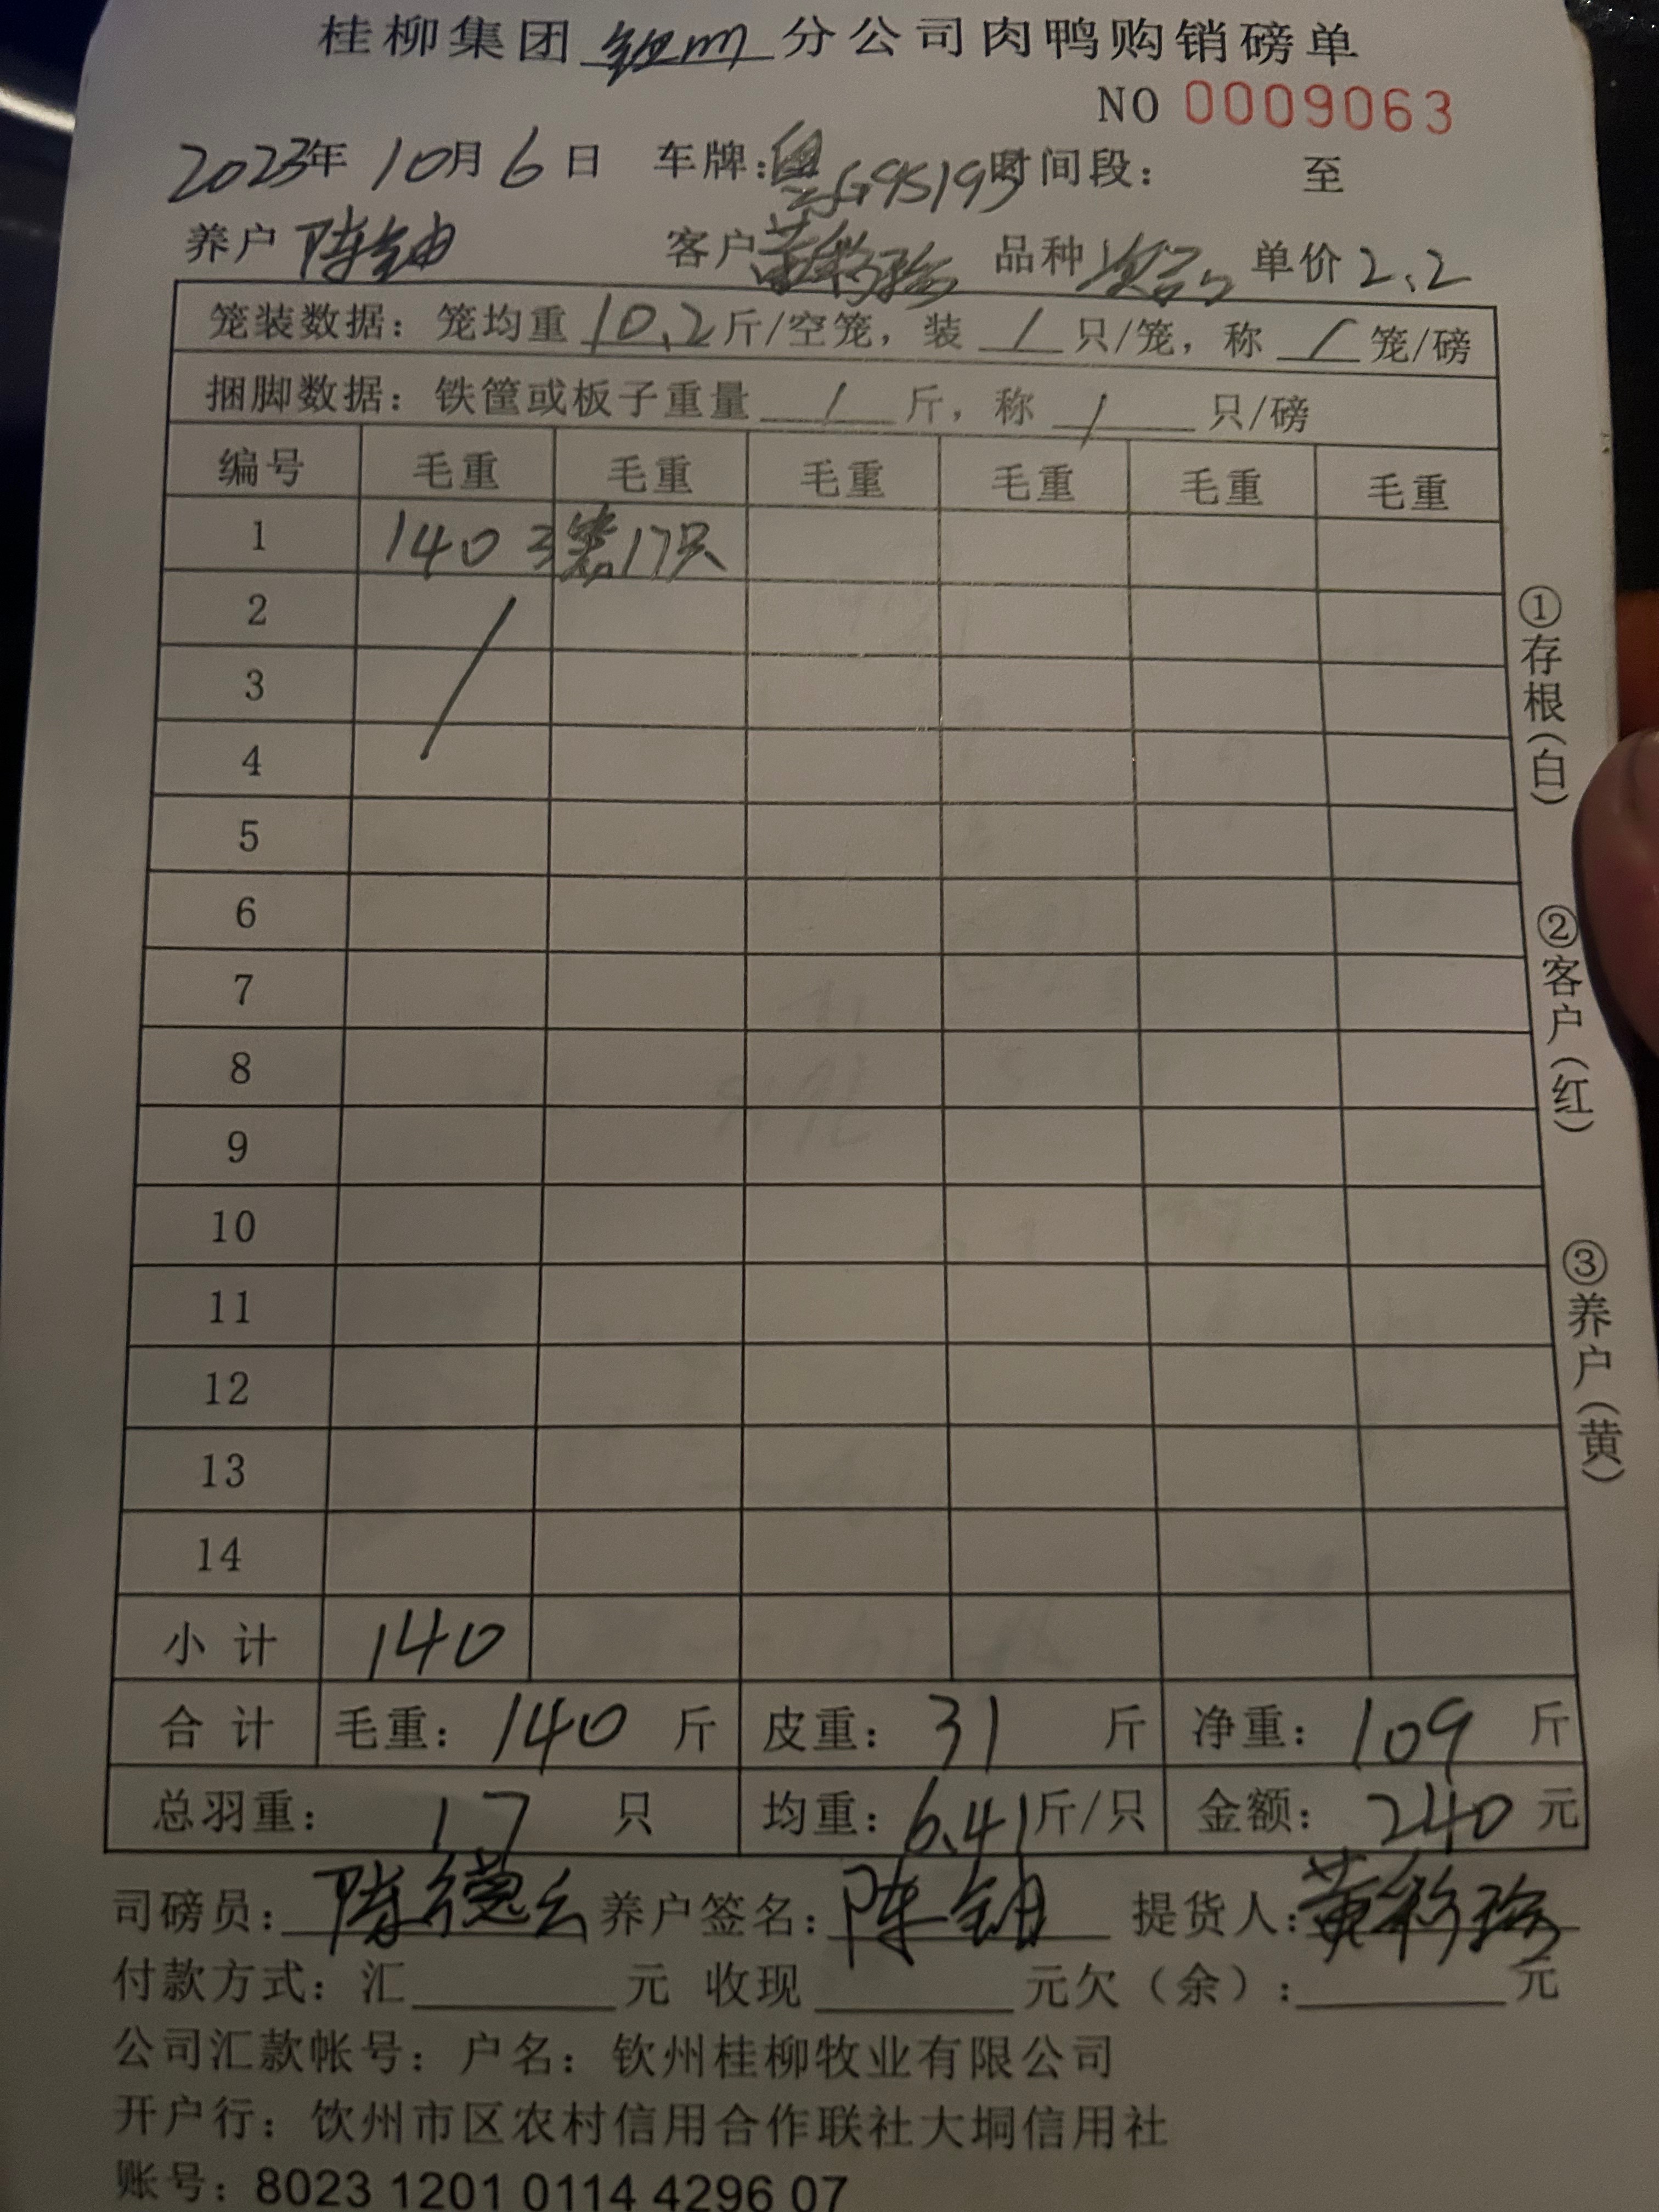 桂柳集团 钦州 分公司肉鸭购销磅单
NO 0009063
2023年 10月 6 日 车牌: 时间段: 至
养户 陈钿 客户 黄彩珍 品种 次品 单价 2.2
笼装数据: 笼均重 10.2 斤/空笼, 装 / 只/笼, 称 / 笼/磅
捆脚数据: 铁筐或板子重量 / 斤, 称 / 只/磅
编号 毛重 毛重 毛重 毛重 毛重 毛重
1 140 3笼17只
2
3
4
5
6
7
8
9
10
11
12
13
14
小计 140
合计 毛重: 140 斤 皮重: 31 斤 净重: 109 斤
总羽重: 17 只 均重: 6.41斤/只 金额: 240 元
司磅员: 陈德云 养户签名: 陈钿 提货人: 黄彩珍
付款方式: 汇 元 收现 元欠(余): 元
公司汇款帐号: 户名: 钦州桂柳牧业有限公司
开户行: 饮州市区农村信用合作联社大垌信用社
账号: 8023 1201 0114 4296 07
①存根(白)
②客户(红)
③养户(黄)